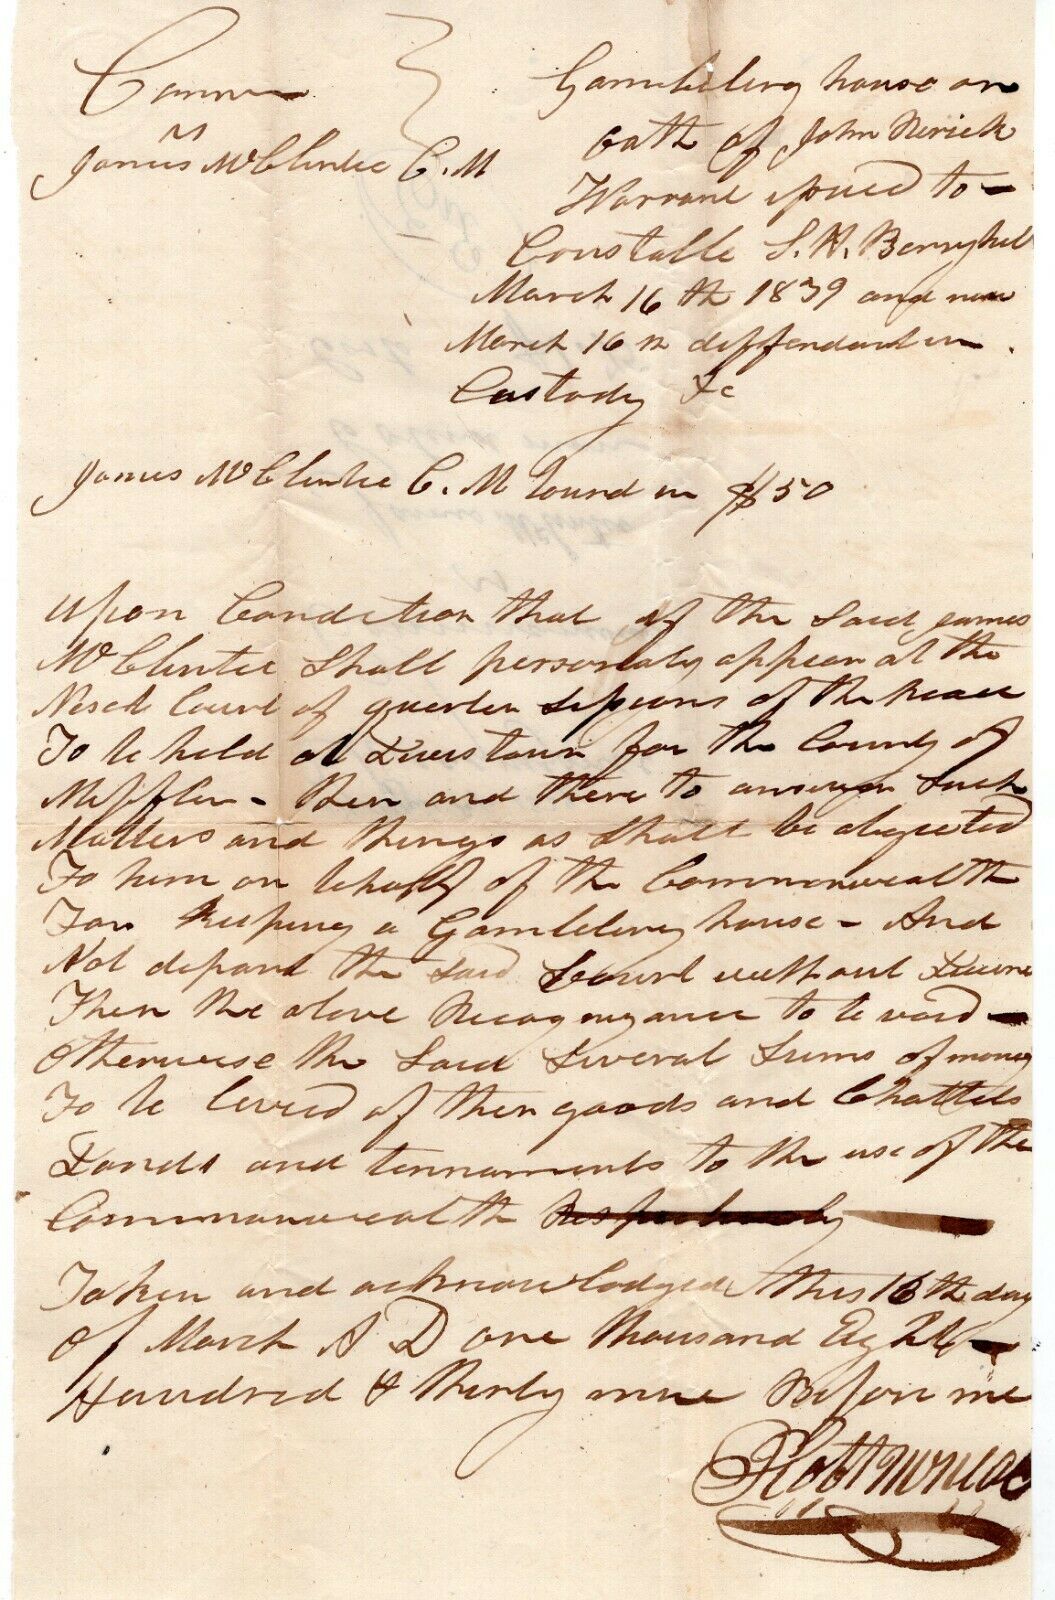 Comm
vs
James McClintec C. M
Gambleing house on
oath of John
Warrant issued to
Constable S. H.
March 16 th 1839 and now
March 16 th deffendant in
Custody &c
James McClintec C. M bound in $50
Upon Condition that if the Said James
McClintec Shall personaly appear at the
Next Court of quarter Sessions of the peace
To be held at Lewistown for the County of
Mifflin - then and there to answer Such
Matters and things as Shall be objected
To him on behalf of the Commonwealth
For keeping a Gambleing house - And
Not depart the Said Court without
Then the above Recognyance to be void
otherwise the Said Several Sums of money
To be levied of their goods and Chattels
Lands and tennaments to the use of the
Commonwealth
Taken and acknowledged this 16 th day
of March A D one thousand Eight
Hundred & thirty nine Before me